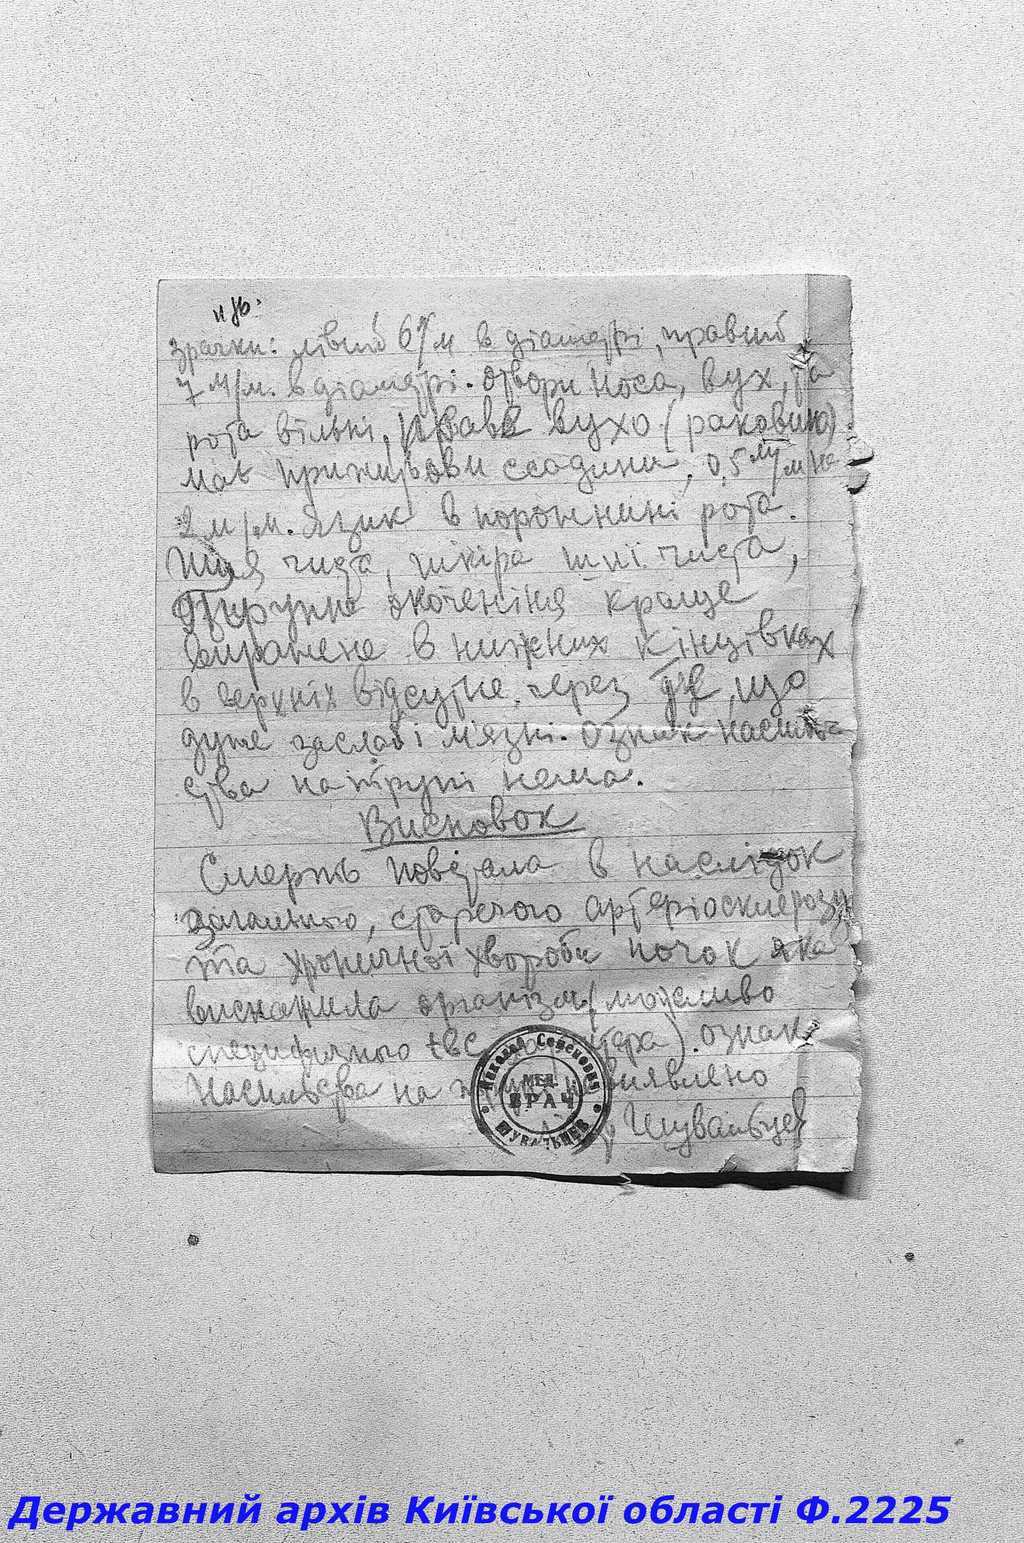 зрачки: лівий 6 м/м в діаметрі, правий
7 м/м. в діаметрі. отвори носа, вух, та
рота вільні, праве вухо (раковина)
має прижиттєви ссадини, 0,5 м/м на
2 м/м. язик в порожнині рота.
Шия чиста, шкіра шиї чиста,
Трупне окоченіння краще
виражене в нижних кінцівках
в верхніх відсутнє, через те, що
дуже заслабі м'язні. Ознак насиль-
ства на трупі нема.
Висновок
Смерть повстала в наслідок
загального, старечого артеріосклерозу
та хроничної хвороби почок яка
виснажила організм (можливо
специфичного tbc ). ознак
насильства на виявлено
Шувальцев
Николай Семенович
МЕД.
ВРАЧ
ШУВАЛЬЦЕВ
Державний архів Київської області Ф.2225